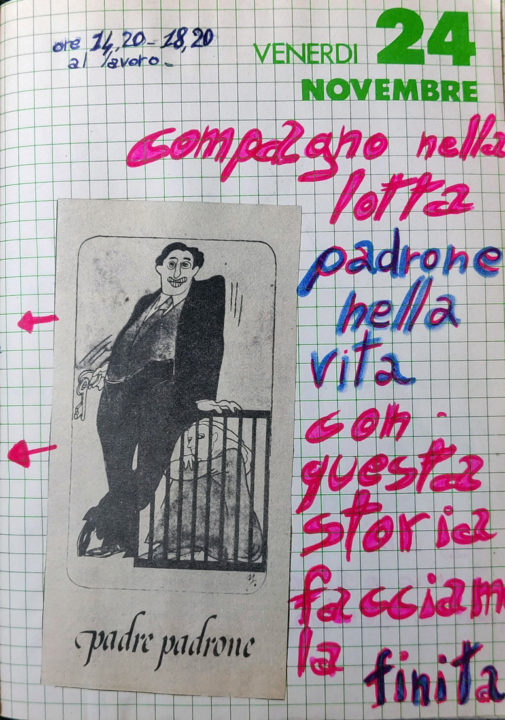 ore 14,20-18,20
al lavoro-
VENERDI 24
NOVEMBRE
compagno nella
lotta
padrone
nella
vita
con
questa
storia
facciam
la finita
padre padrone